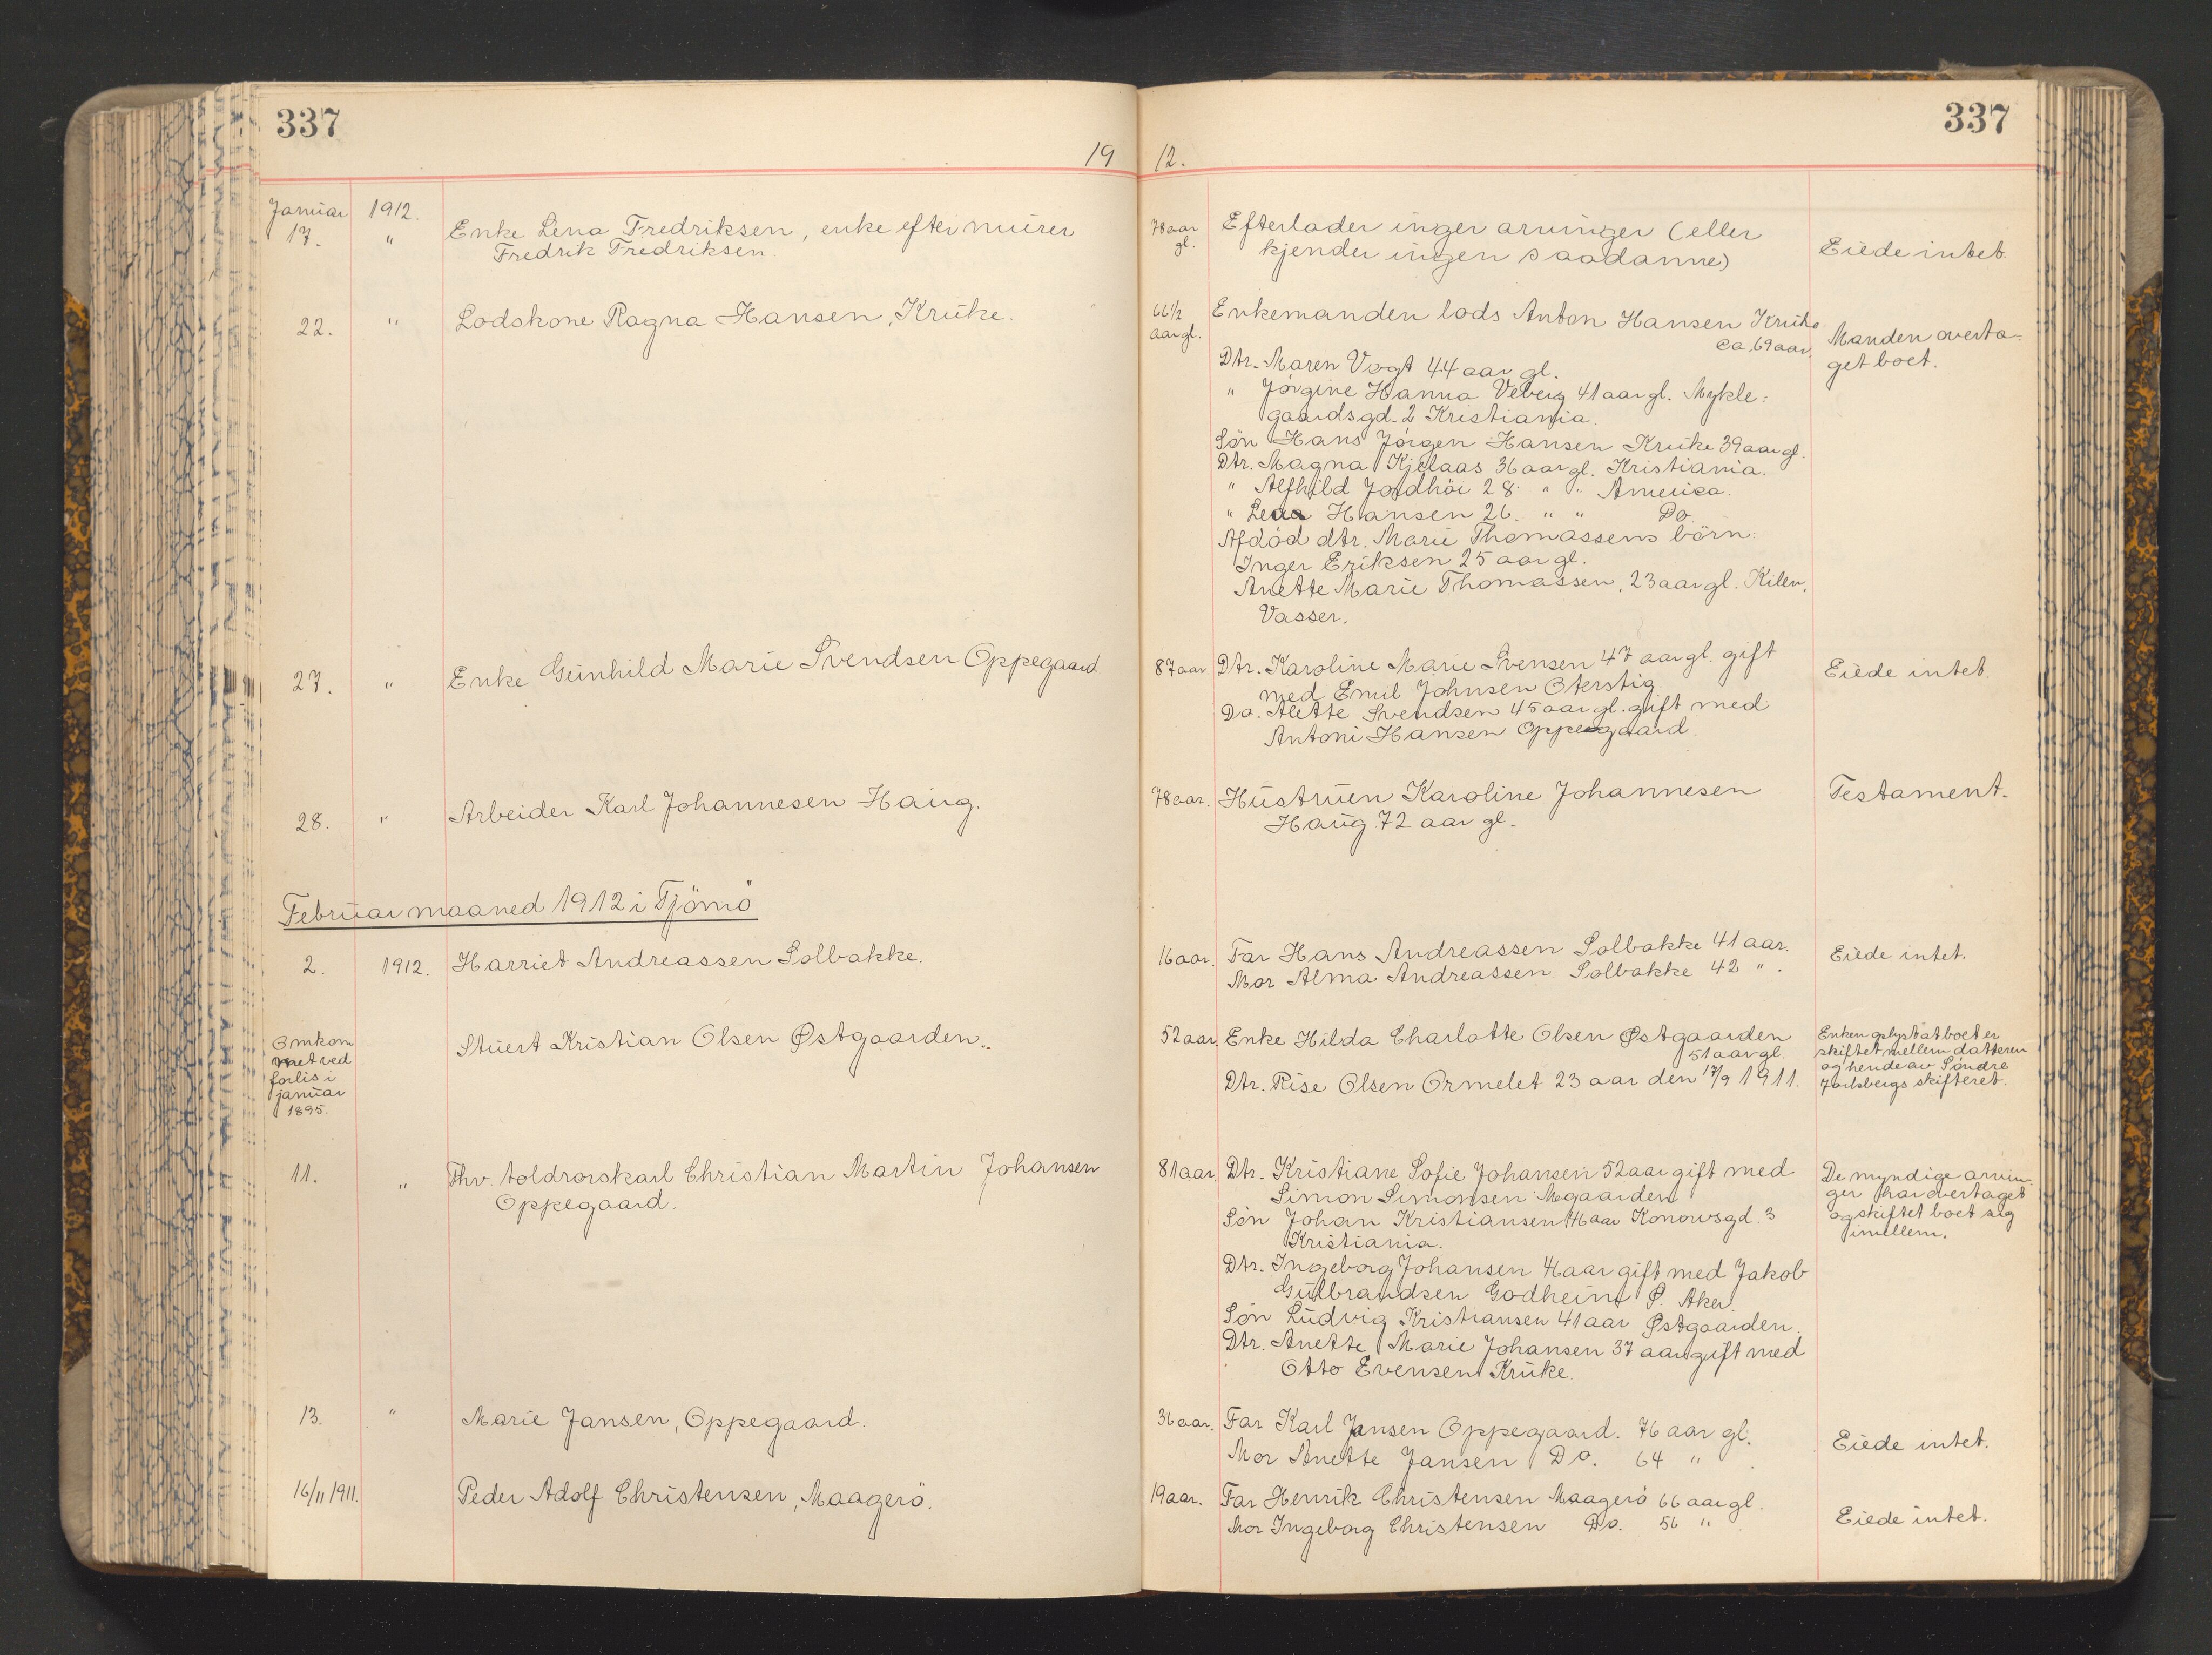 337
337
19 12.
Januar 1912.
17. " Enke Lena Fredriksen, enke efter murer
Fredrik Fredriksen.
78 aar gl.
Efterlader ingen arvinger (eller
kjender ingen saadanne)
Eiede intet.
22. " Lodskone Ragna Hansen, Kruke.
66 1/2 aar gl.
Enkemanden lods Anton Hansen Kruke
ca. 69 aar.
Dtr. Maren Vogt 44 aar gl.
" Jörgine Hanna Veberg 41 aar gl. Mykle=
gaardsgd. 2 Kristiania.
Sön Hans Jörgen Hansen Kruke 39 aar gl.
Dtr. Magna Kjelaas 36 aar gl. Kristiania.
" Alfhild Jordhöi 28. " " America.
" Lena Hansen 26. " " Do.
Afdöd dtr. Marie Thomassens börn:
Inger Eriksen 25 aar gl.
Anette Marie Thomassen, 23 aar gl. Kilen,
Vasser.
Manden overta-
get boet.
27. " Enke Gunhild Marie Svendsen Oppegaard.
87 aar.
Dtr. Karoline Marie Svensen 47 aar gl. gift
med Emil Johnsen Oterstig.
Do. Alette Svendsen 45 aar gl. gift med
Antoni Hansen Oppegaard.
Eiede intet.
28. " Arbeider Karl Johannesen Haug.
78 aar.
Hustruen Karoline Johannesen
Haug. 72 aar gl.
Testament.
Februar maaned 1912 i Tjömö
2. 1912. Harriet Andreassen Solbakke.
16 aar.
Far Hans Andreassen Solbakke 41 aar.
Mor Alma Andreassen Solbakke 42 ".
Eiede intet.
Omkom
met ved
forlis i
januar
1895.
Stuert Kristian Olsen Østgaarden.
52 aar
Enke Hilda Charlotte Olsen Østgaarden
51 aar gl.
Dtr. Rise Olsen Ormelet 23 aar den 17/9 1911.
Enken oplyst at boet er
skiftet mellem datteren
og hende av Söndre
Jarlsbergs skifteret.
11. " Fhv. toldrorskarl Christian Martin Johansen
Oppegaard.
81 aar
Dtr. Kristiane Sofie Johansen 52 aar gift med
Simon Simonsen Mgaarden
Sön Johan Kristiansen 46 aar Konowsgd. 3
Kristiania.
Dtr. Ingeborg Johansen 41 aar gift med Jakob
Gulbrandsen Godheim Ø. Aker.
Sön Ludvig Kristiansen 41 aar Østgaarden.
Dtr. Anette Marie Johansen 37 aar gift med
Otto Evensen Kruke.
De myndige arvin-
ger har overtaget
og skiftet boet sig
imellem.
13. " Marie Jansen, Oppegaard.
36 aar.
Far Karl Jansen Oppegaard. 76 aar gl.
Mor Anette Jansen Do. 64 " .
Eiede intet.
16/11 1911. Peder Adolf Christensen, Maagerö.
19 aar.
Far Henrik Christensen Maagerö 66 aar gl.
Mor Ingeborg Christensen Do. 56 " .
Eiede intet.